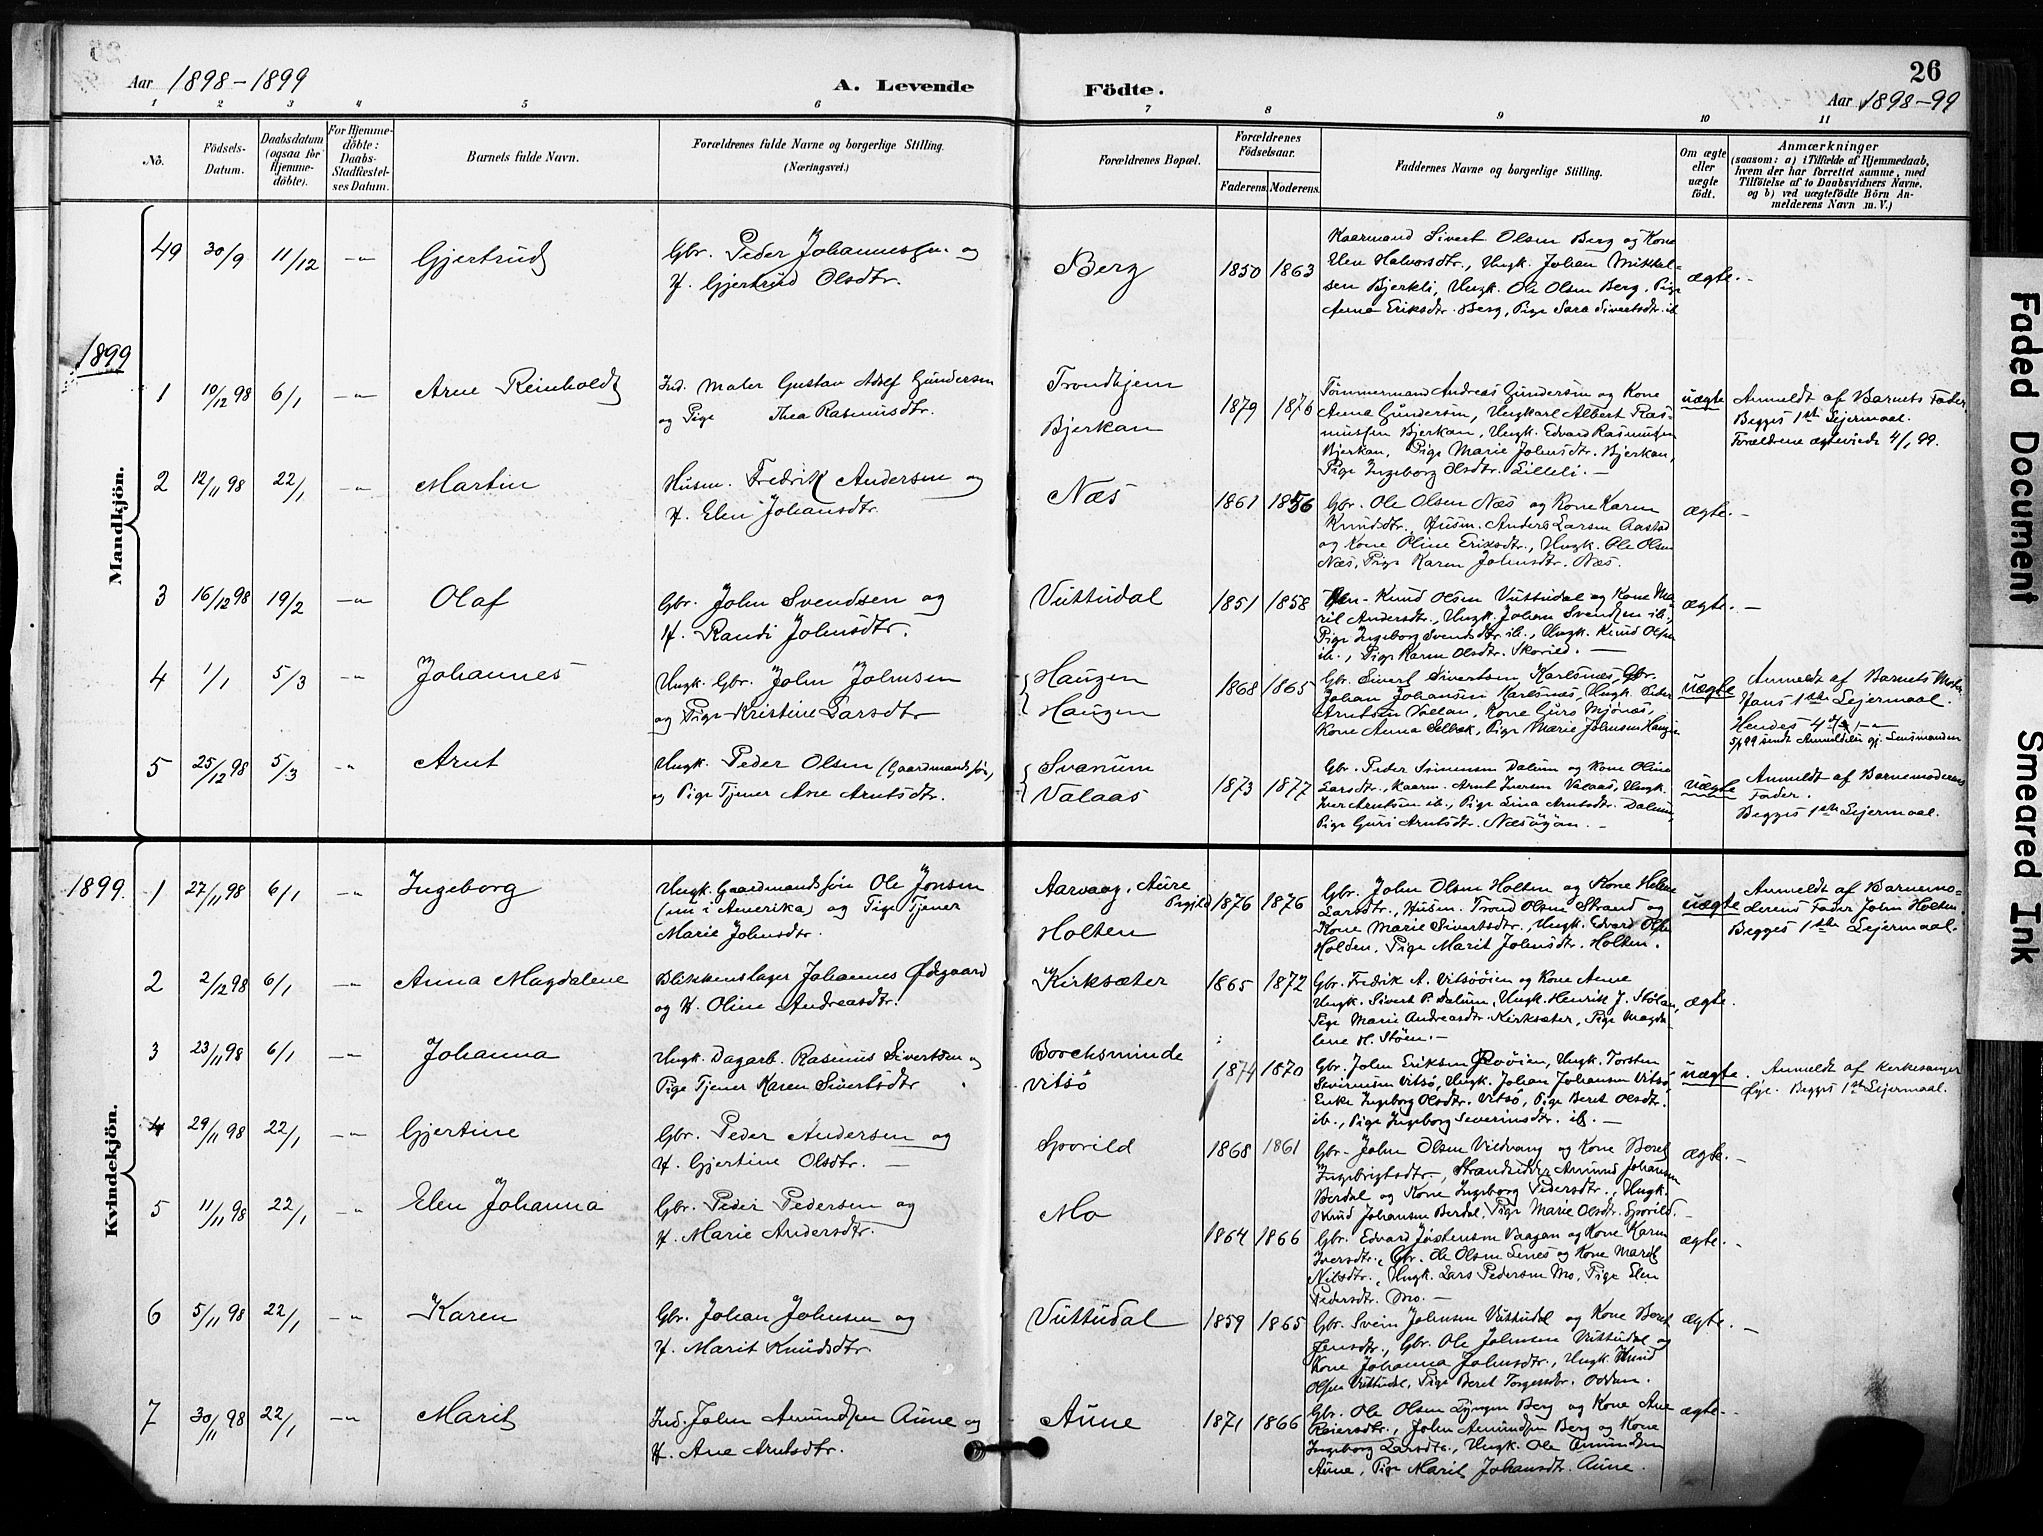 26
Aar 1898-1899
A. Levende
Födte.
Aar 1898-99
1 2 3 4 5 6 7 8 9 10 11
No.
Födsels-
Datum.
Daabsdatum
(ogsaa for
Hjemme-
döbte).
For Hjemme-
döbte:
Daabs-
Stadfæstel-
ses Datum.
Barnets fulde Navn.
Forældrenes fulde Navne og borgerlige Stilling.
(Næringsvei.)
Forældrenes Bopæl.
Forældrenes
Födselsaar.
Faderens. Moderens.
Faddernes Navne og borgerlige Stilling.
Om ægte
eller
uægte
födt.
Anmærkninger
(saasom: a) i Tilfælde af Hjemmedaab,
hvem der har forrettet samme, med
Tilföielse af to Daabsvidners Navne.
og b) ved uægtefödte Börn An-
melderens Navn m. V.)
49 30/9 11/12 -"- Gjertrud
Gbr. Peder Johannessen og
H. Gjertrud Olsdtr.
Berg 1850 1863
Kaarmand Sivert Olsen Berg og Kone
Elen Halvorsdtr., Ungk. Johan Mikkel-
sen Bjerkli, Ungk. Ole Olsen Berg, Pige
Anna Eriksdtr. Berg, Pige Sara Sivertsdtr. ib.
ægte. -
1899
Mandkjön.
1 10/12 98 6/1 -"- Arne Reinholdt
Ind. Maler Gustav Adolf Gundersen
og Pige Thea Rasmusdtr.
Trondhjem
Bjerkan
1879 1876
Tømmermand Andreas Gundersen og Kone
Anna Gundersen, Ungkarl Albert Ras-
mussen Bjerkan, Ungk. Edvard Rasmussen
Bjerkan, Pige Marie Johnsdtr. Bjerkan,
Pige Ingeborg Olsdtr. Lilleli. -
uægte
Anmeldt af Barnets Fader.
Begges 1ste Lejermaal.
Forældrene ægteviede 4/1 99.
2 12/11 98 22/1 -"- Martin
Husm. Fredrik Andersen og
H. Elen Johansdtr.
Næs 1861 1856
Gbr. Ole Olsen Næs og Kone Karen
Knudsdtr., Husm. Anders Larsen Aastad
og Kone Oline Eriksdtr., Ungk. Ole Olsen
Næs, Pige Karen Johnsdtr. Næs.
ægte. -
3 16/12 98 19/2 -"- Olaf
Gbr. John Svendsen og
H. Randi Johnsdtr.
Vuttudal 1851 1858
Knud Olsen Vuttudal og Kone Ma-
rit Andersdtr., Ungk. Johan Svendsen ib.,
Pige Ingeborg Svendsdtr. ib., Ungk. Knud Olsen
ib., Pige Karen Olsdtr. Skovild. -
ægte. -
4 1/1 5/3 -"- Johannes
Ungk. Gbr. John Johnsen
og Pige Kristine Larsdtr
Haugen
Haugen
1868 1865
Gbr. Sivert Sivertsen Karlsnæs, Gbr.
Johan Johansen Karlsnæs, Ungk. Peder
Arntsen Vallan, Kone Guro Mjønæs,
Kone Anna Selbæk, Pige Marie Johnsen Haugen
uægte
Anmeldt af Barnets Moder
Hans 1ste Lejermaal.
Hendes 4de -"-
sendt Anmeldelse gj. Lensmanden
5 25/12 98 5/3 -"- Arnt
Ungk. Peder Olsen (Gaardmandssøn,
og Pige Tjener Ane Arntsdtr.
Svanum
Valaas
1873 1877
Gbr. Peder Simensen Dalum og Kone Oline
Larsdtr., Kaarm. Arnt Iversen Valaas, Ungk.
Iver Arntsen ib., Pige Lina Arntsdtr. Dalum,
Pige Guri Arntsdtr. Næsøyan. -
uægte
Anmeldt af Barnemoderens
Fader.
Begges 1ste Lejermaal.
1899.
Kvindekjön.
1 27/11 98 6/1 -"- Ingeborg
Ungk. Gaardmandssøn Ole Jonsen
(nu i Amerika) og Pige Tjener
Marie Johnsdtr.
Aarvaag, Aure
Prgjld
Holten
1876 1876
Gbr. John Olsen Holten og Kone Helene
Larsdtr., Husm. Trond Olsen Strand og
Kone Marie Sivertsdtr., Ungk. Edvard Olsen
Holden, Pige Marit Johnsdtr. Holten.
uægte
Anmeldt af Barnemo-
derens Fader John Holten.
Begges 1ste Lejermaal.
2 2/12 98 6/1 -"- Anna Magdalene
Blikkenslager Johannes Ødegaard
og H. Oline Andreasdtr.
Kirksæter 1865 1872
Gbr. Fredrik A. Vitsøøien og Kone Anne
Ungk. Sivert P. Dalum, Ungk. Henrik J. Stølan,
Pige Marie Andreasdtr. Kirksæter, Pige Magda-
lene H. Støen. -
ægte.
3 23/11 98 6/1 -"- Johanna
Ungk. Dagarb. Rasmus Sivertsen og
Pige Tjener Karen Sivertsdtr
Borchsminde
Vitsø
1874 1870
Gbr. John Eriksen Rovøien, Ungk. Torsten
Severinsen Vitsø, Ungk. Johan Johansen Vitsø,
Enke Ingeborg Olsdtr. Vitsø, Pige Beret Olsdtr.
ib., Pige Ingeborg Severinsdtr. ib. -
uægte.
Anmeldt af Kirkesanger
Øye. Begges 1ste Lejermaal.
4 29/11 98 22/1 -"- Gjertine
Gbr. Peder Andersen og
H. Gjertine Olsdtr. -
Sporild 1868 1861
Gbr. John Olsen Vildvang og Kone Beret
Ingebrigtsdtr., Strandsidder Amund Johansen
Berdal og Kone Ingeborg Pedersdtr., Ungk.
Knud Johansen Berdal, Pige Marie Olsdtr. Sporild. -
ægte. -
5 11/11 98 22/1 -"- Elen Johanna
Gbr. Peder Pedersen og
H. Marie Andersdtr.
Mo 1864 1866
Gbr. Edvard Jostensen Vaagan og Kone Karen
Iversdtr., Gbr. Ole Olsen Lenes og Kone Marit
Nilsdtr., Ungk. Lars Pedersen Mo, Pige Elen
Pedersdtr. Mo. -
ægte. -
6 5/11 98 22/1 -"- Karen
Gbr. Johan Johnsen og
H. Marit Knudsdtr
Vuttudal 1859 1865
Gbr. Svein Johnsen Vuttudal og Kone Beret
Jensdtr., Gbr. Ole Johnsen Vuttudal og
Kone Johanna Johnsdtr., Ungk. Knud
Olsen Vuttudal, Pige Beret Torgersdtr. Oddan.
ægte. -
7 30/11 98 22/1 -"- Marit
Ind. John Amundsen Aune og
H. Ane Arntsdtr.
Aune 1871 1866
Gbr. Ole Olsen Lyngen Berg og Kone Ane
Reiersdtr., John Amundsen Berg og Kone
Ingeborg Larsdtr., Ungk. Ole Amundsen
Aune, Pige Marit Johansdtr. Aune.
ægte. -
Faded Document
Smeared Ink